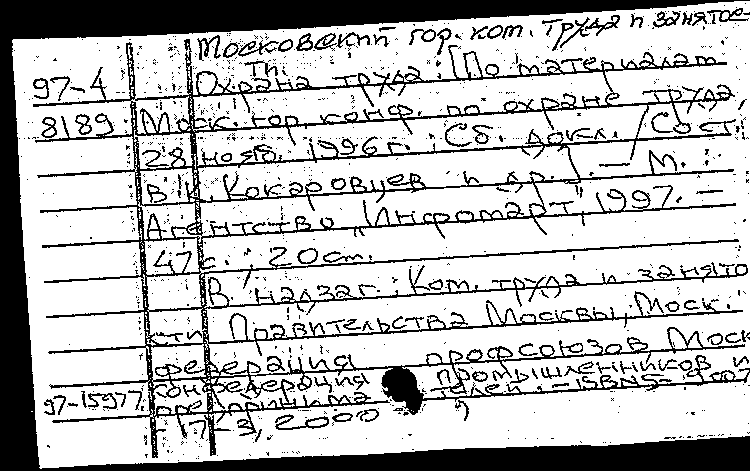 Московский гор. ком. труда и занятос-
ти.
97-4 Охрана труда : [По материалам
8189 Моск. гор. конф. по охране труда,
28 нояб. 1996 г. : Сб. докл. / Сост.
В.К. Кокаровцев и др.]. — М. :
Агентство „Инфомарт", 1997. —
47 с. ; 20 см.
В надзаг. : Ком. труда и занято
сти Правительства Москвы, Моск.
федерация профсоюзов Моск
конфедерация промышленников и
97-15977 предпринима телей. — ISBN 5-
-17-3, 2000